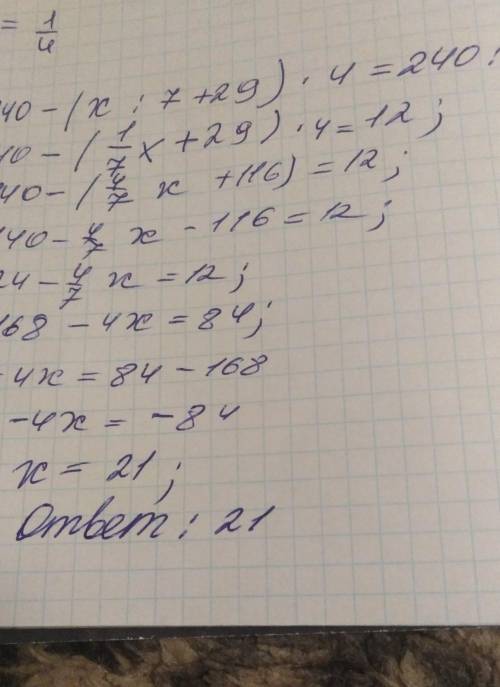 = 1/4
40 - (x : 7 + 29) · 4 = 240 :
10 - (1/7 x + 29) · 4 = 12 ;
40 - (4/7 x + 116) = 12 ;
140 - 4/7 x - 116 = 12 ;
24 - 4/7 x = 12 ;
168 - 4x = 84 ;
-4x = 84 - 168
-4x = -84
x = 21 ;
Ответ : 21